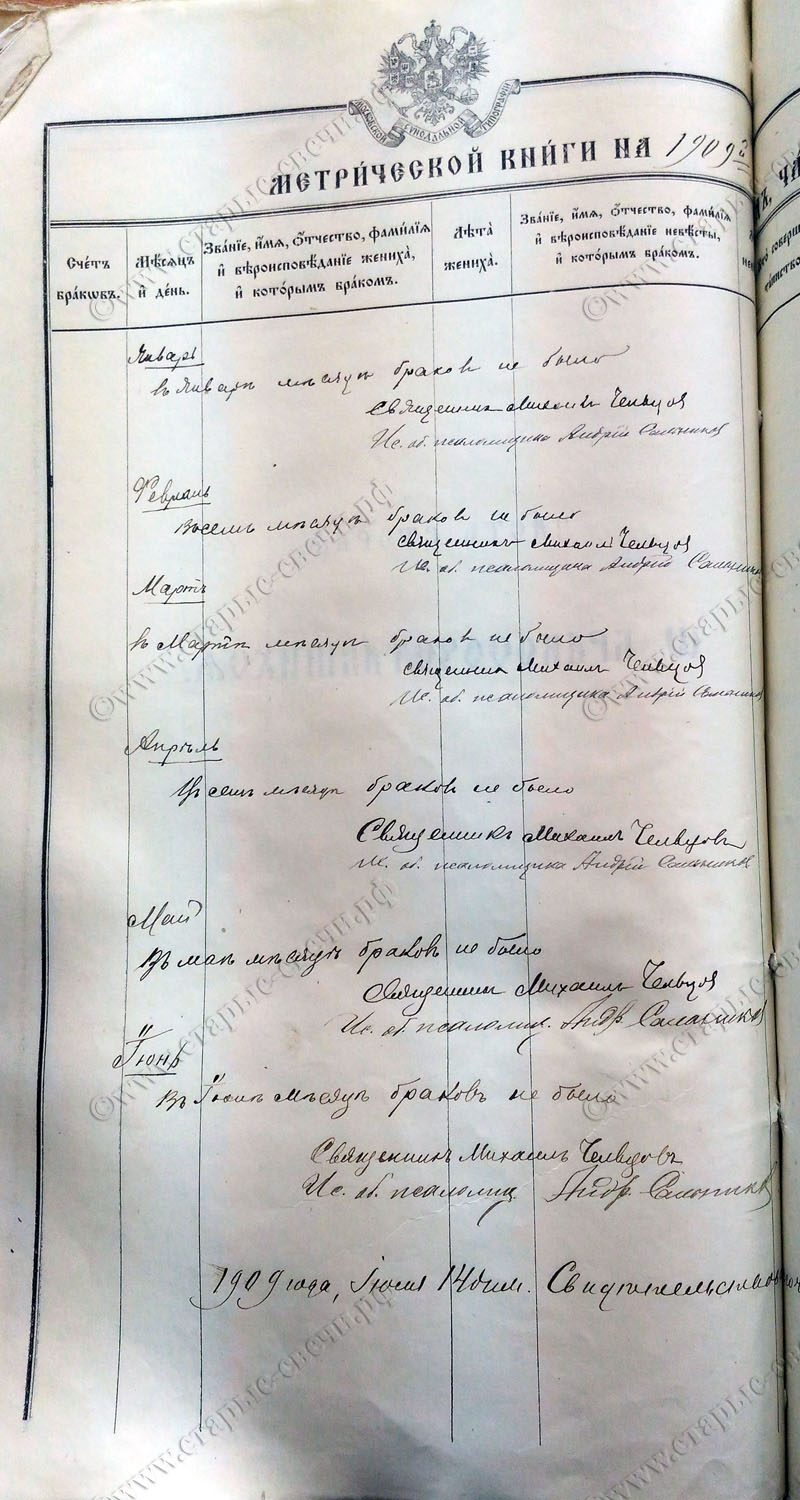 МОСКОВСКОЙ СѴНОДАЛЬНОЙ ТИПОГРАФІИ
МЕТРИ́ЧЕСКОЙ КНИ́ГИ НА 1909
Сче́тъ бра́кѡвъ.
Мѣ́сѧцъ и҆ де́нь.
Зва́нїе, и҆́мѧ, ѻ҆́тчество, фами́лїѧ и҆ вѣроисповѣ́данїе жениха̀, и҆ кото́рымъ бра́комъ.
Лѣта̀ жениха̀.
Зва́нїе, и҆́мѧ, ѻ҆́тчество, фами́лїѧ и҆ вѣроисповѣ́данїе невѣ́сты, и҆ кото́рымъ бра́комъ.
Январь
въ Январѣ мѣсяцѣ браков не было
Священник Михаилъ Чельцов
Ис. об. псаломщика Андрій Сальников
Февраль
В семъ мѣсяцѣ браков не было
Священникъ Михаил Чельцов
Ис. об. псаломщика Андрій Сальников
Мартъ
въ Мартѣ мѣсяцѣ браков не было
Священник Михаилъ Чельцов
Ис. об. псаломщика Андрій Сальников
Апрѣль
Въ семъ мѣсяцѣ браков не было
Священникъ Михаилъ Чельцовъ
Ис. об. псаломщика Андрій Сальников
Май
Въ маѣ мѣсяцѣ браковъ не было
Священник Михаилъ Чельцов
Ис. об. псаломщ. Андр. Сальников
Іюнь
Въ Іюнѣ мѣсяцѣ браковъ не было
Священникъ Михаилъ Чельцовъ
Ис. об. псаломщ. Андр. Сальников
1909 года, Іюля 14 дня. Свидѣтельствов
©www.старыс-свечи.рф